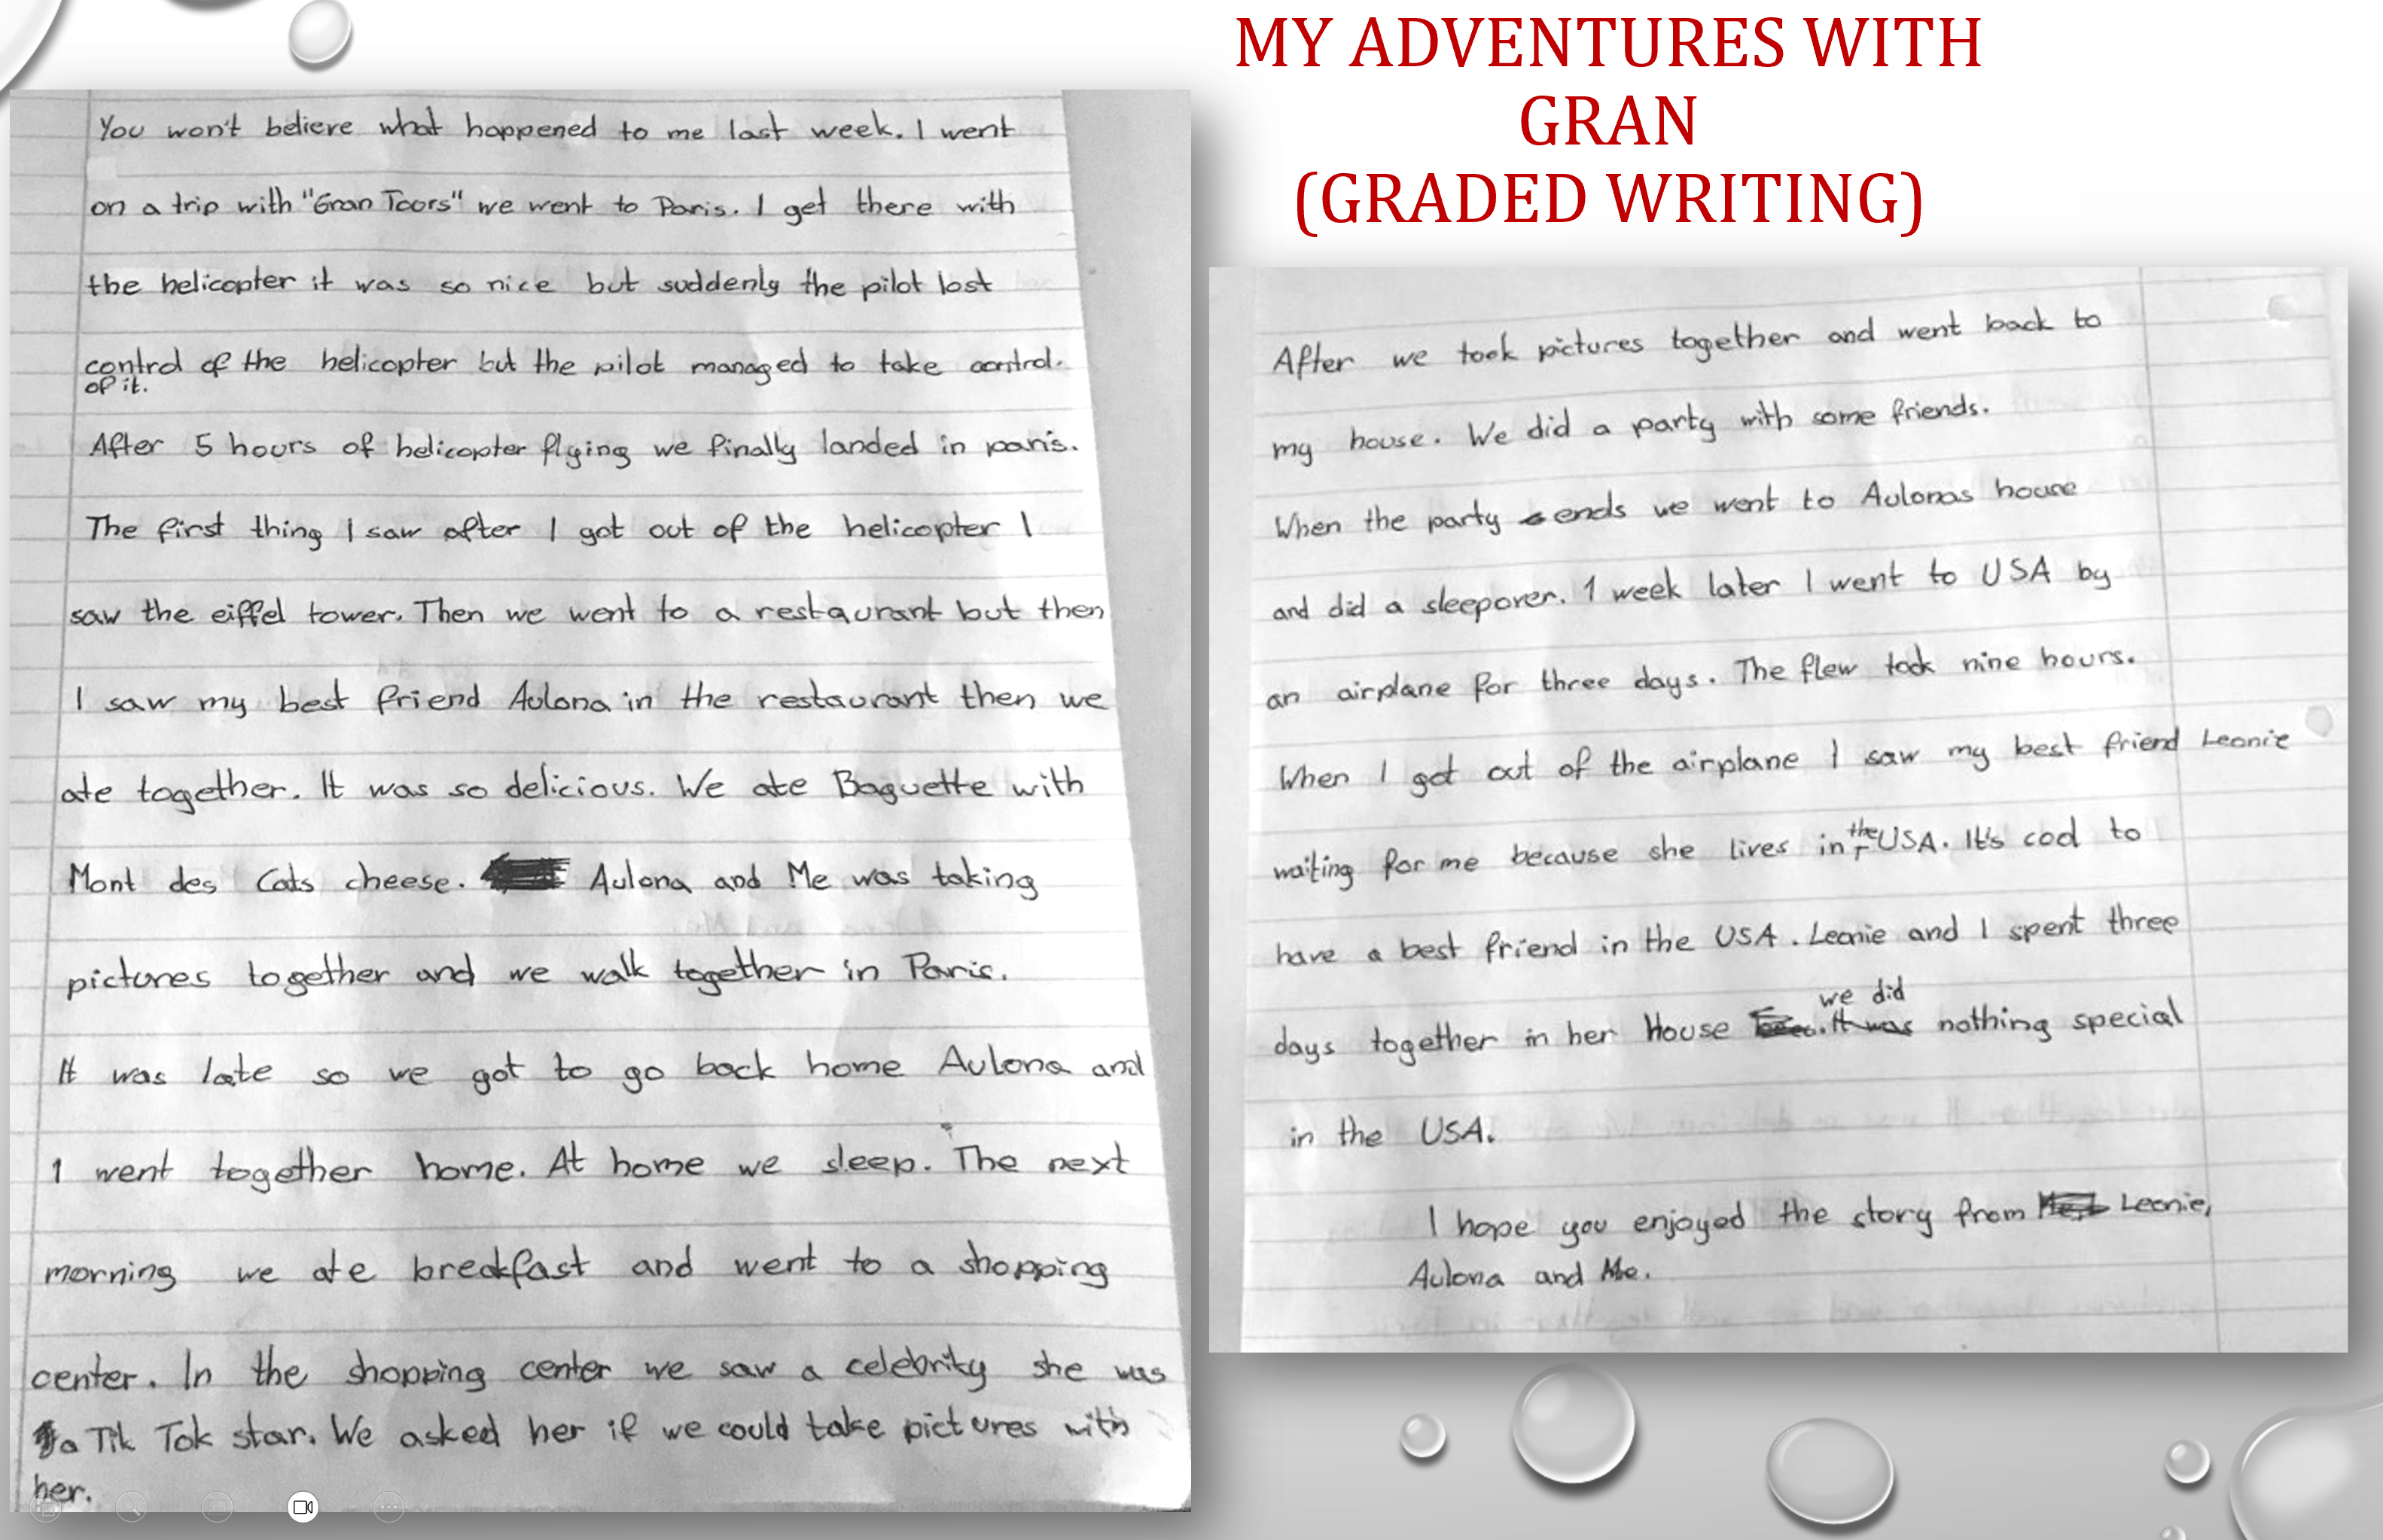 MY ADVENTURES WITH
GRAN
(GRADED WRITING)
You won't believe what happened to me last week. I went
on a trip with "Gran Toors" we went to Paris. I get there with
the helicopter it was so nice but suddenly the pilot lost
control of the helicopter but the pilot managed to take control.
of it.
After 5 hours of helicopter flying we finally landed in paris.
The first thing I saw after I got out of the helicopter I
saw the eiffel tower. Then we went to a restaurant but then
I saw my best friend Aulona in the restaurant then we
ate together. It was so delicious. We ate Baguette with
Mont des Cats cheese. Aulona and Me was taking
pictures together and we walk together in Paris.
It was late so we got to go back home Aulona and
I went together home. At home we sleep. The next
morning we ate breakfast and went to a shopping
center. In the shopping center we saw a celebrity she was
a Tik Tok star. We asked her if we could take pictures with
her.
After we took pictures together and went back to
my house. We did a party with some friends.
When the party ends we went to Aulonas house
and did a sleepover. 1 week later I went to USA by
an airplane for three days. The flew took nine hours.
When I got out of the airplane I saw my best friend Leonie
waiting for me because she lives in the USA. It's cool to
have a best friend in the USA. Leonie and I spent three
days together in her House we did nothing special
in the USA.
I hope you enjoyed the story from Leonie,
Aulona and Me.